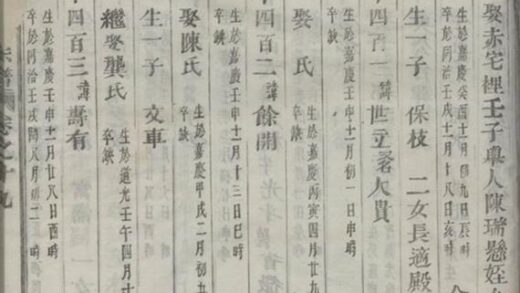 娶赤宅裡壬子舉人陳瑞懸姪
生於嘉慶癸酉十二月初九日辰時
卒於同治壬戌十一月十八日亥時
生一子 保枝 二女長適殿
十四百一諱世立名大貴
生於嘉慶壬申十一月初一日申時
卒缺
娶 氏
生於嘉慶丙寅四月廿九
卒缺
十四百二諱餘開
生於嘉慶壬申十一月十三日巳時
卒缺
娶陳氏
生於嘉慶甲戌二月初九
卒缺
生一子 文車
繼娶龔氏
生於道光壬午四月十
卒缺
十四百三諱壽有
生於嘉慶壬申十二月廿八日酉時
卒於同治壬戌閏八月初二 時
卷之十九